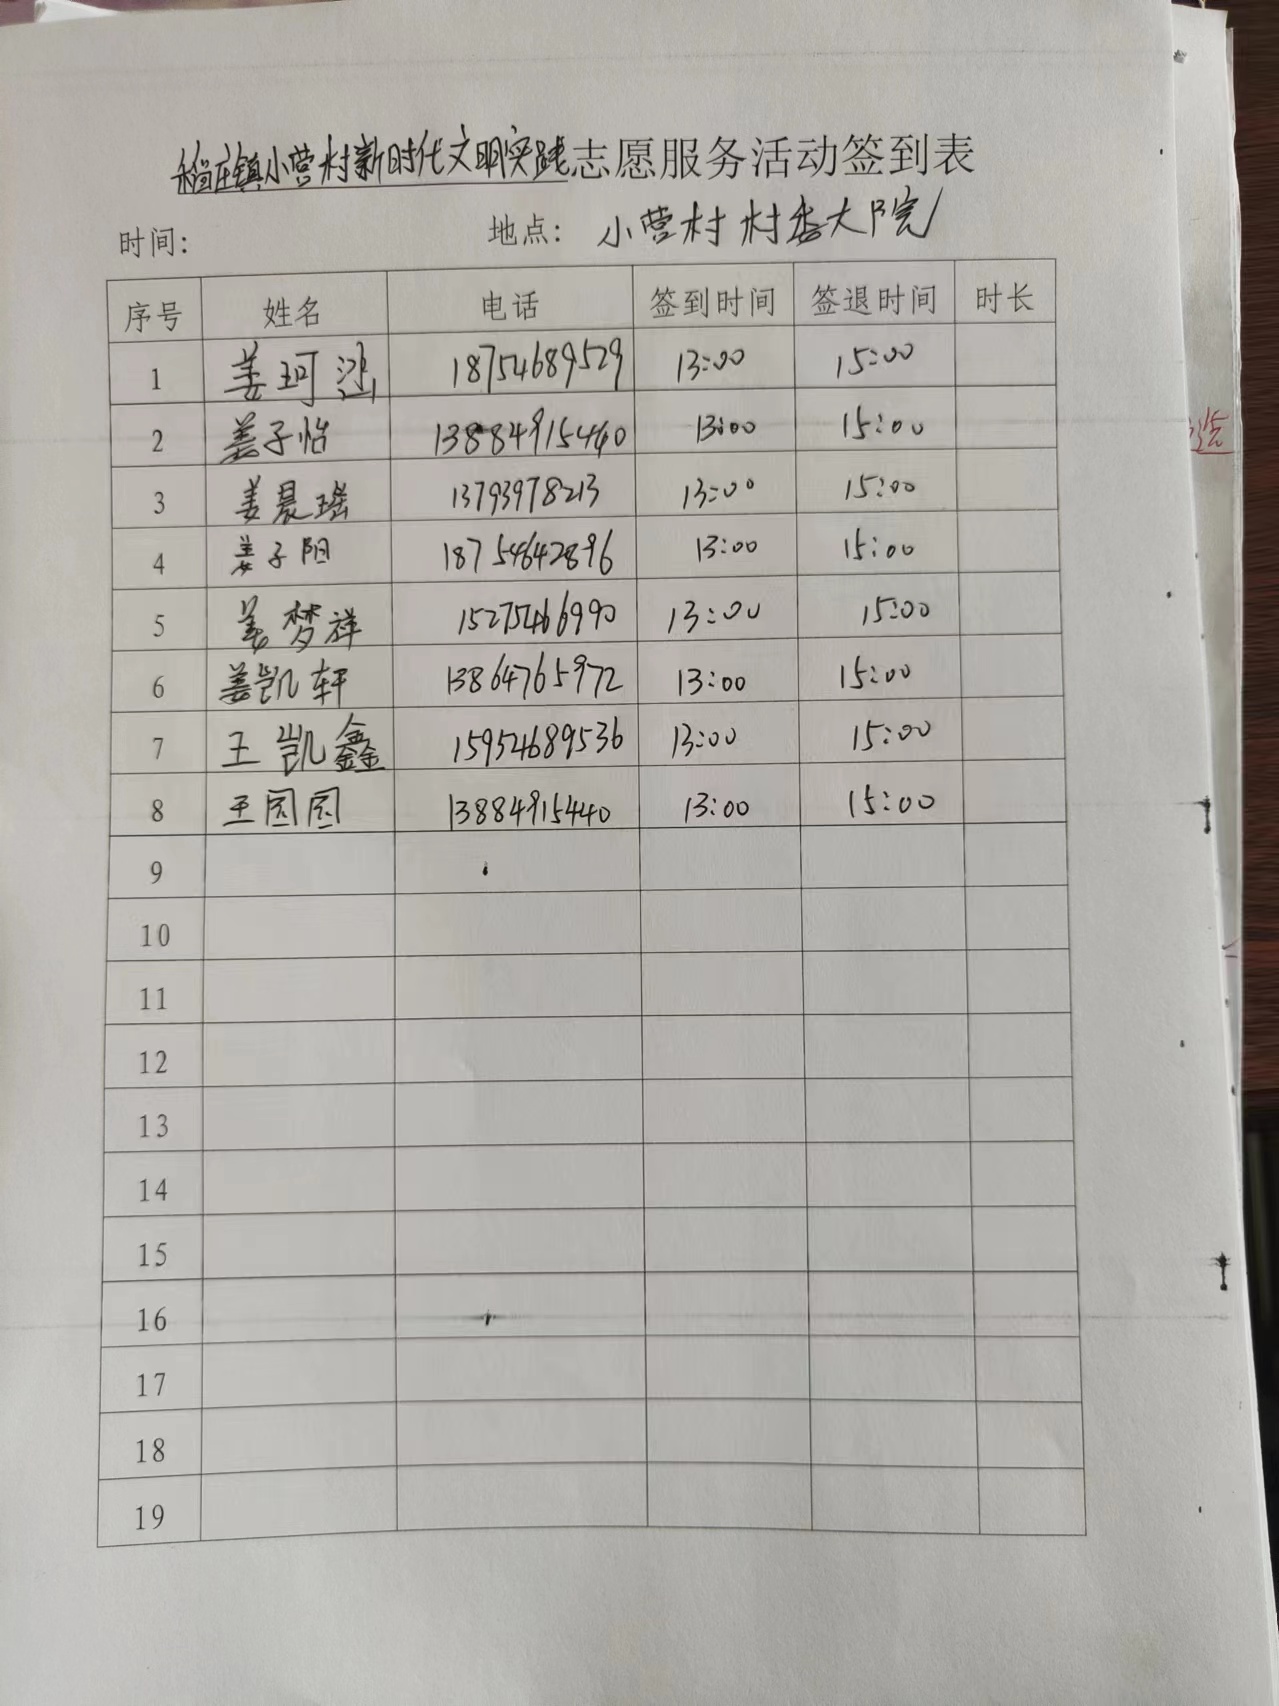 稻庄镇小营村新时代文明实践志愿服务活动签到表
时间: 地点: 小营村村委大院
序号 姓名 电话 签到时间 签退时间 时长
1 姜珂 18754689529 13:00 15:00
2 姜子怡 13884915460 13:00 15:00
3 姜晨瑶 13793978213 13:00 15:00
4 姜子阳 18754642896 13:00 15:00
5 姜梦祥 15275466990 13:00 15:00
6 姜凯轩 13864765972 13:00 15:00
7 王凯鑫 15954689536 13:00 15:00
8 王园园 13884915440 13:00 15:00
9
10
11
12
13
14
15
16
17
18
19